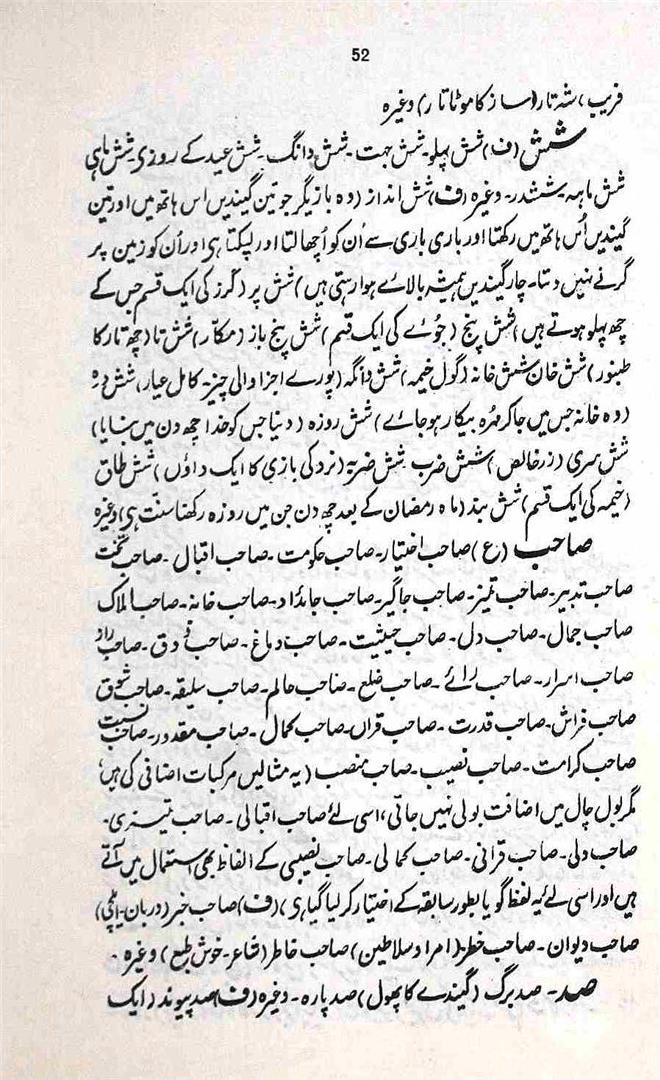 52
فریب، شہ تار (ساز کا موٹا تار) وغیرہ
شش (ف) شش پہلو۔ شش جہت۔ شش دانگ۔ شش عید کے روزی۔ شش ماہی
شش ماہہ۔ ششدر۔ وغیرہ (ف) شش انداز (وہ بازیگر جو تین گیندیں اس ہاتھ میں اور تین
گیندیں اُس ہاتھ میں رکھتا اور باری باری سے اُن کو اُچھالتا اور لپکتا ہی اور اُن کو زمین پر
گرنے نہیں دیتا۔ چار گیندیں ہمیشہ بالاے ہوا رہتی ہیں) شش پر (گرز کی ایک قسم جس کے
چھ پہلو ہوتے ہیں) شش پنج (جوُے کی ایک قسم) شش پنج باز (مکّار) شش تا (چھ تار کا
طنبور) شش خان شش خانہ (گول خیمہ) شش دانگہ (پورے اجزا والی چیز۔ کامل عیار) شش درہ
(وہ خانہ جس میں جا کر مہُرہ بیکار ہو جاے) شش روزہ (دنیا جس کو خدا چھ دن میں بنایا)
شش سری (زر خالص) شش ضرب شش ضربہ (نرد کی بازی کا ایک داؤں) شش طاق
(خیمہ کی ایک قسم) شش بند (ماہ رمضان کے بعد چھ دن جن میں روزہ رکھنا سنت ہی) وغیرہ
صاحب (ع) صاحب اختیار۔ صاحب حکومت۔ صاحب اقبال۔ صاحب تخت
صاحب تدبیر۔ صاحب تمیز۔ صاحب جاگیر۔ صاحب جائداد۔ صاحب خانہ۔ صاحب املاک
صاحب جمال۔ صاحب دل۔ صاحب حیثیت۔ صاحب دماغ۔ صاحب ذوق۔ صاحب راز
صاحب اسرار۔ صاحب رائے۔ صاحب ضلع۔ صاحب عالم۔ صاحب سلیقہ۔ صاحب شوق
صاحب فراش۔ صاحب قدرت۔ صاحب قراں۔ صاحب کمال۔ صاحب مقدور۔ صاحب نسبت
صاحب کرامت۔ صاحب نصیب۔ صاحب منصب (یہ مثالیں مرکبات اضافی کی ہیں،
مگر بول چال میں اضافت بولی نہیں جاتی، اسی لئے صاحب اقبالی۔ صاحب تمیزی۔
صاحب دلی۔ صاحب قرانی۔ صاحب کمالی۔ صاحب نصیبی کے الفاظ بھی استعمال میں آتے
ہیں اور اسی لئے یہ لفظ گویا بطور سابقہ کے اختیار کر لیا گیا ہی) (ف) صاحب خبر (دربان۔ ایلچی)
صاحب دیوان۔ صاحب خطر (امرا و سلاطین) صاحب خاطر (شاعر۔ خوش طبع) وغیرہ۔
صد۔ صد برگ (گیندے کا پھول) صد پارہ۔ وغیرہ (ف) صد پیوند (ایک